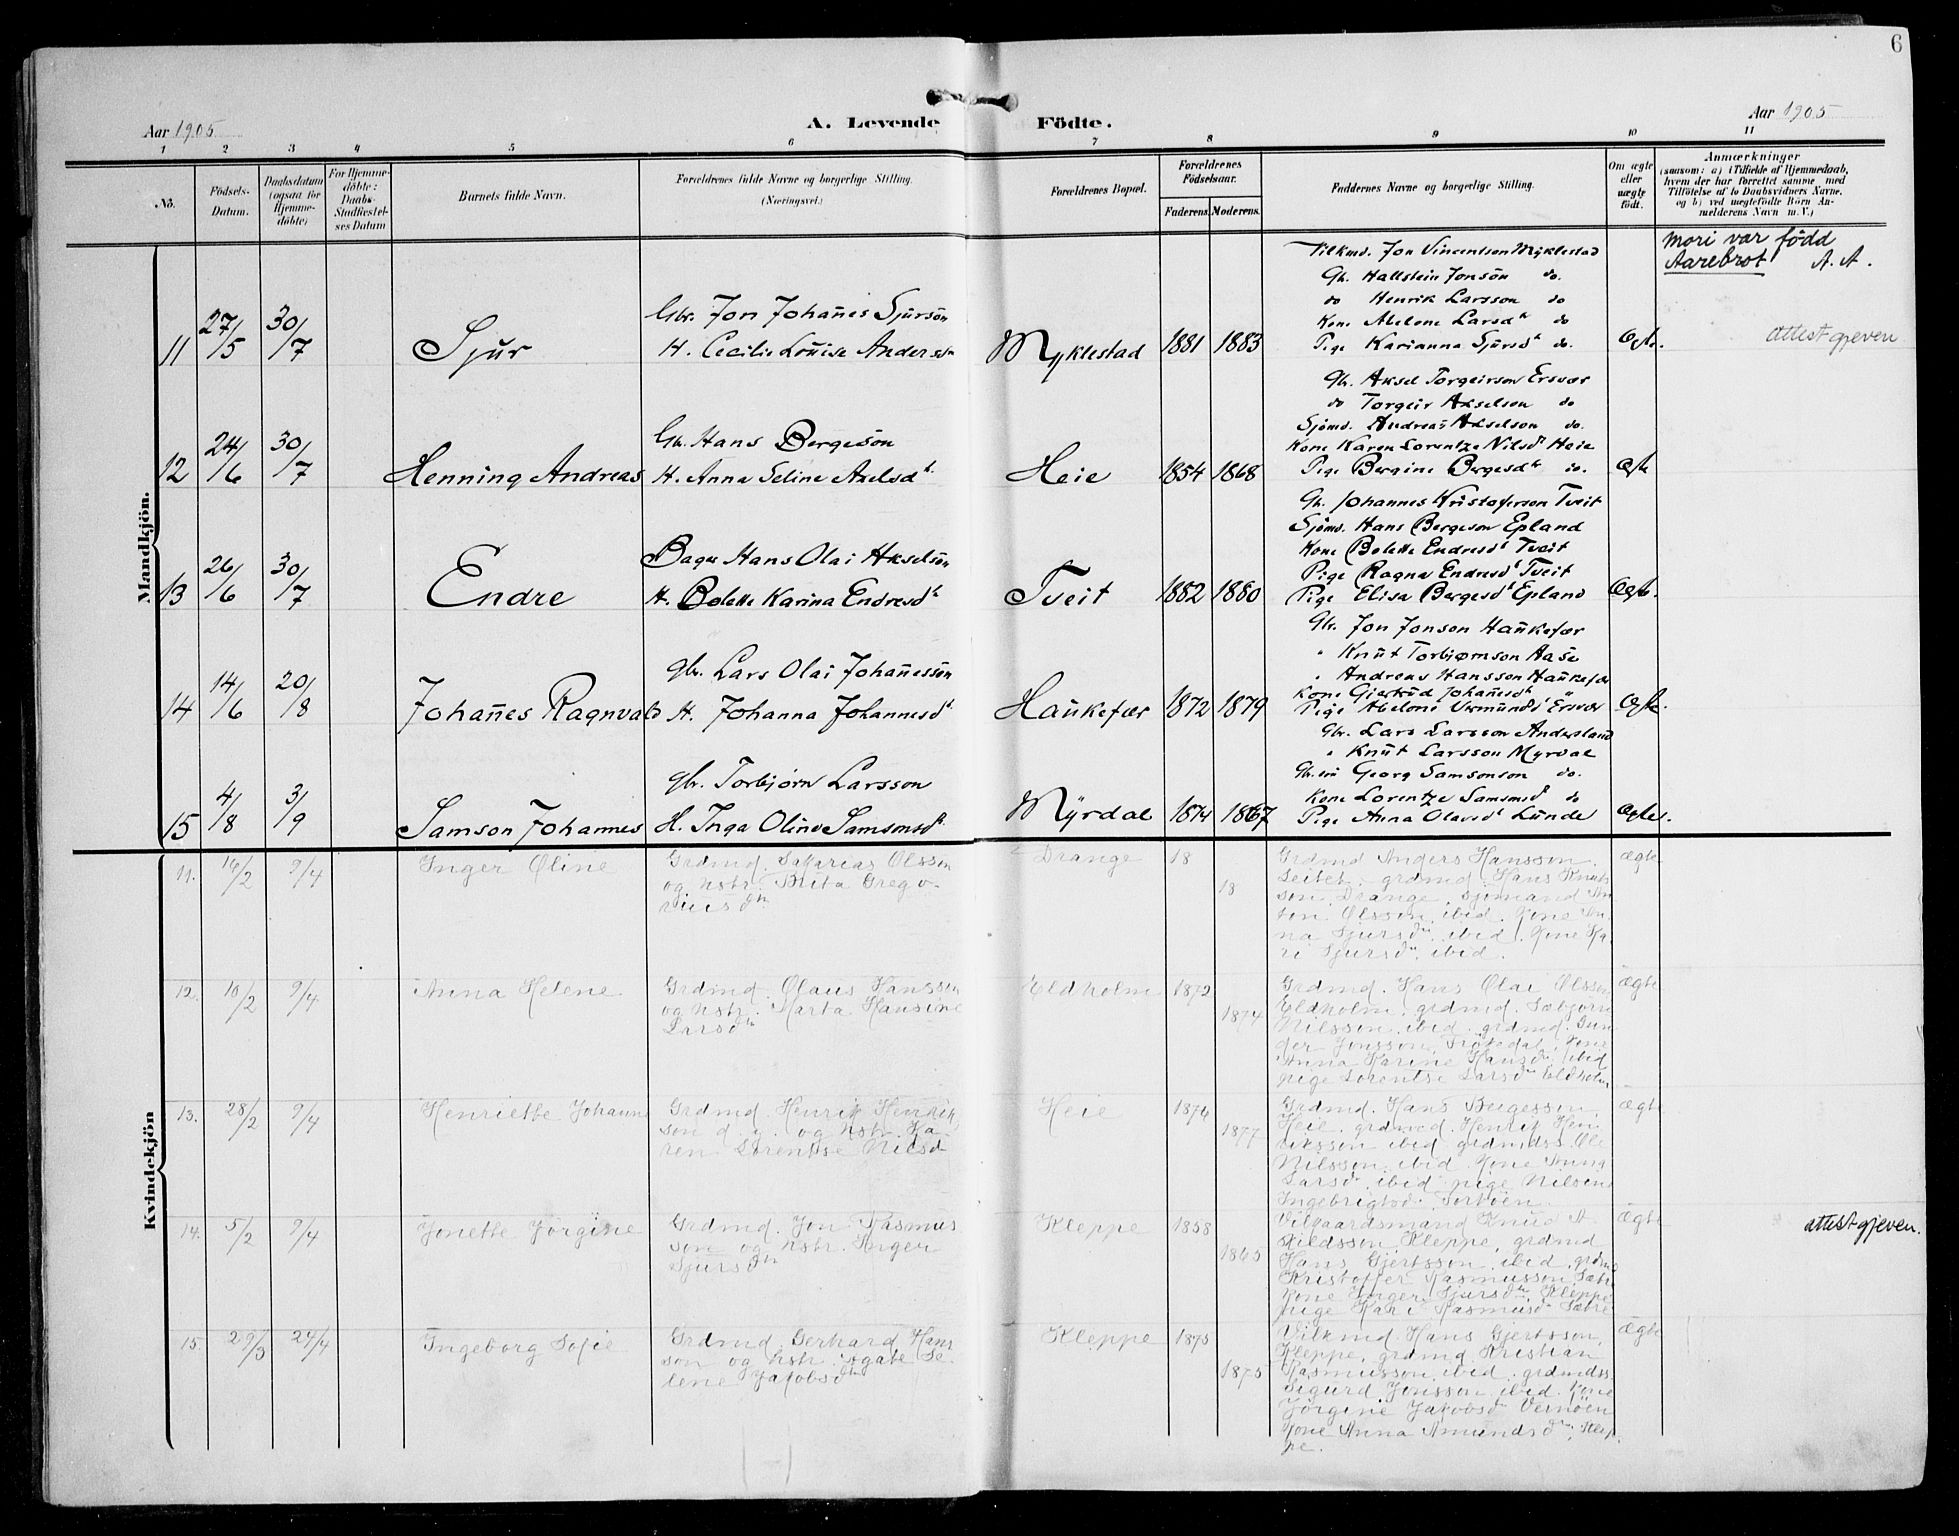 6
Aar 1905 A. Levende Födte. Aar 1905
1 2 3 4 5 6 7 8 9 10 11
No. Födsels-Datum. Daabsdatum (ogsaa for Hjemmedöbte) For Hjemmedöbte: Daabs-Stadfæstelses Datum Barnets fulde Navn. Forældrenes fulde Navne og borgerlige Stilling. (Næringsvei.) Forældrenes Bopæl. Forældrenes Födselsaar. Faderens Moderens. Faddernes Navne og borgerlige Stilling. Om ægte eller uægte födt. Anmærkninger
(saasom: a) i Tilfælde af Hjemmedaab,
hvem der har forrettet samme med
Tilföielse af to Daabsvidners Navne.
og b) ved uægtefödte Börn An-
melderens Navn m. V.)
Mandkjön.
Vilkmd. Jon Vincentson Myklestad
mori var född
Gb. Hallstein Jonsön do.
Aarebrot A. A.
do Henrik Larsson do
Kone Abelone Larsdtr do
11 27/5 30/7 Sjur Gbr. Jon Johan̄es Sjursön
H. Cecilie Louise Andersen Myklestad 1881 1883 Pige Karianna Sjursdtr do. Ægte. attest gjeven
Gbr. Aksel Torgeirson Ersvær
do Torgeir Akselson do
Sjömd. Andreas Akselson do.
Kone Karen Lorentze Nilsd Heie
12 24/6 30/7 Henning Andreas Gb. Hans Bergesön
H. Anna Seline Axelsdtr Heie 1854 1868 Pige Bergine Bergesdtr do. Ægte
Gb. Johannes Kristoferson Tveit
Sjömd. Hans Bergeson Epland
Kone Bolette Endresdtr Tveit
Pige Ragna Endresdtr Tveit
13 26/6 30/7 Endre Bager Hans Olai Akselsön
H. Bolette Karina Endresdtr Tveit 1882 1880 Pige Elisa Bergesd Epland Ægte.
Gbr. Jon Jonson Haukefær
" Knut Torbjørnson Aase
" Andreas Hansson Haukefær
Kone Gjertrud Johanesdtr "
14 14/6 20/8 Johan̄es Ragnvald gbr. Lars Olai Johan̄essön
H. Johanna Johannesdtr Haukefær 1872 1879 Pige Abelone Vermundsd Ersvær Ægte.
Gbr. Lars Larsson Andersland
" Knut Larsson Myrdal
Gb.sön Georg Samsonson do.
Kone Lorentze Samsonsd do
15 4/8 3/9 Samson Johannes gbr. Torbjörn Larsson
H. Inga Oline Samsonsdtr Myrdal 1874 1867 Pige Anna Olavsd Lunde Ægte.
Kvindekjön
11. 16/2 9/4 Inger Oline Grdmd. Sakarias Olsson
og hstr. Brita Grego-
riusdtr
Drange 18 18
Grdmd Anders Hansson,
Leitet, grdmd. Hans Knuts-
son, Drange, sjömand An-
ton Olsson, ibid. Kone An-
na Sjursdtr, ibid. Kone Ka-
ri Sjursdtr, ibid.
ægte
12. 10/2 9/4 Anna Helene Grdmd. Olaus Hansson
og hstr. Marta Hansine
Larsdtr
Eldholm 1872 1874
Grdmd. Hans Olai Olsson
Eldholm, grdmd. Sæbjörn
Nilsson, ibid. grdmd. Gun-
der Jonsson, Kone
Anna Karine Hansdtr, ibid
pige Lorentse Larsdtr Eldholm
ægte
13. 28/2 9/4 Henriette Johanne Grdmd. Henrik Henrik-
son d. y. og hstr. Ka-
ren Lorentse Nilsd
Heie 1874 1877
Grdmd. Hans Bergesson,
Heie, grdmd. Henrik Hen-
riksson ibid grdmdss. Ole
Nilsson, ibid. Kone
Larsd, ibid. pige
Ingebrigtsd.
ægte
14. 5/2 9/4 Jonette Jörgine Grdmd. Jon Rasmus-
son og hstr. Inger
Sjursdtr
Kleppe 1858 1865
Vilgaardsmand Knud A-
Kleppe, grdmd
Hans Gjertsson, ibid, grdmd
Kristoffer Rasmusson Sætre
Kone Inger Sjursdtr, Kleppe
pige Kari Rasmusd Sætre
ægte attest gjeven.
15. 29/3 24/4 Ingeborg Sofie Grdmd. Gerhard Hans-
son og hstr. Agate Se-
lene Jakobsdtr
Kleppe 1875 1875
Vilkmd. Hans Gjertsson,
Kleppe, grdmd Kristian
Rasmusson, ibid, grdmdss.
Sigurd Jonsson, ibid. Kone
Jörgine Jakobsd Vernöen
Kone Anna Amundsdtr, Klep-
pe.
ægte